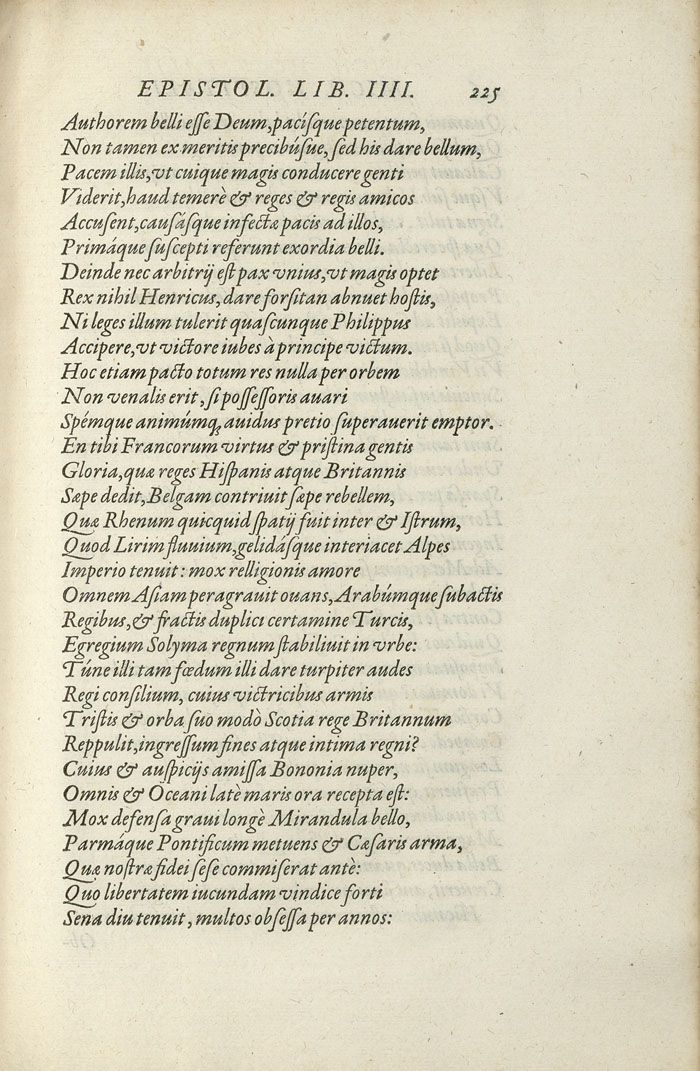 EPISTOL. LIB. IIII. 225
Authorem belli eſſe Deum, pacíſque petentum,
Non tamen ex meritis precibúſue, ſed his dare bellum,
Pacem illis, vt cuique magis conducere genti
Viderit, haud temerè & reges & regis amicos
Accuſent, cauſáſque infectæ pacis ad illos,
Primáque ſuſcepti referunt exordia belli.
Deinde nec arbitrij eſt pax vnius, vt magis optet
Rex nihil Henricus, dare forſitan abnuet hoſtis,
Ni leges illum tulerit quaſcunque Philippus
Accipere, vt victore iubes à principe victum.
Hoc etiam pacto totum res nulla per orbem
Non venalis erit, ſi poſſeſſoris auari
Spémque animúmq; auidus pretio ſuperauerit emptor.
En tibi Francorum virtus & priſtina gentis
Gloria, quæ reges Hiſpanis atque Britannis
Sæpe dedit, Belgam contriuit ſæpe rebellem,
Quæ Rhenum quicquid ſpatij fuit inter & Iſtrum,
Quod Lirim fluuium, gelidáſque interiacet Alpes
Imperio tenuit: mox relligionis amore
Omnem Aſiam peragrauit ouans, Arabúmque ſubactis
Regibus, & fractis duplici certamine Turcis,
Egregium Solyma regnum ſtabiliuit in vrbe:
Túne illi tam fœdum illi dare turpiter audes
Regi conſilium, cuius victricibus armis
Triſtis & orba ſuo modò Scotia rege Britannum
Reppulit, ingreſſum fines atque intima regni?
Cuius & auſpicijs amiſſa Bononia nuper,
Omnis & Oceani latè maris ora recepta eſt:
Mox defenſa graui longè Mirandula bello,
Parmáque Pontificum metuens & Cæſaris arma,
Quæ noſtræ fidei ſeſe commiſerat antè:
Quo libertatem iucundam vindice forti
Sena diu tenuit, multos obſeſſa per annos: